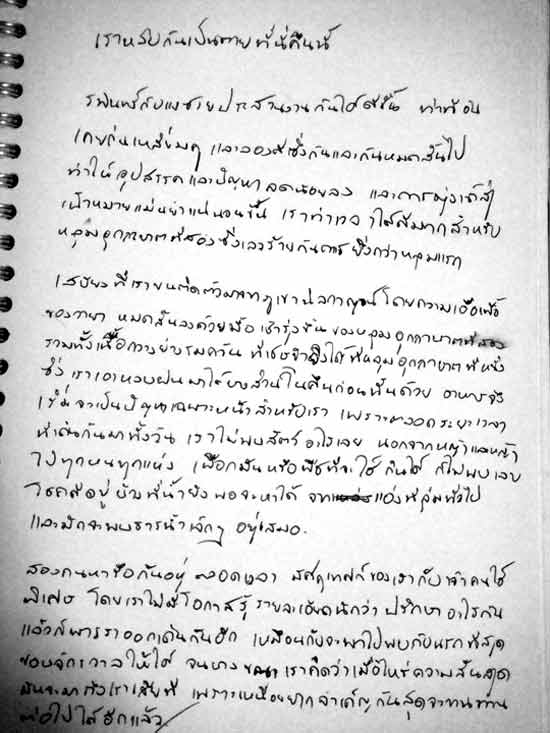 เราหลับกันเป็นตายที่นี่คืนนี้
รพินทร์กับแงซายประสานงานกันได้ดีขึ้น ท่าทีอัน
เคยกินเหลี่ยมคู และลองดีซึ่งกันและกันหมดสิ้นไป
ทำให้อุปสรรคและปัญหาลดน้อยลง และการมุ่งเข้าสู่
เป้าหมายแม่นยำแน่นอนขึ้น เราทำเวลาได้ดีมากสำหรับ
หลุมอุกกาบาตที่สองซึ่งเลวร้ายกันดารยิ่งกว่าหลุมแรก
เสบียงที่เราขนติดตัวมาจากภูเขานิลกาญจน์โดยความเอื้อเฟื้อ
ของวายา หมดสิ้นลงด้วยมื้อเช้ารุ่งขึ้น ของหลุมอุกกาบาตที่สอง
รวมทั้งเนื้อกวางย่างรมควัน ที่เชษฐายิงได้ที่หลุมอุกกาบาตที่หนึ่ง
ซึ่งเราเอาหลบฝนมาได้บางส่วนในคืนก่อนนั้นด้วย อาหารจึง
เริ่มจะเป็นปัญหาเฉพาะหน้าสำหรับเรา เพราะตลอดระยะเวลา
ที่เดินกันมาทั้งวัน เราไม่พบสัตว์อะไรเลย นอกจากหญ้าและหญ้า
ไปทุกหนทุกแห่ง เผือกมันหรือพืชที่จะใช้กินได้ ก็ไม่พบเลย
โชคดีอยู่บ้างที่น้ำยังพอจะหาได้ จากแอ่งที่ลุ่มทั่วไป
และมักจะพบธารน้ำเล็กๆ อยู่เสมอ.
สองคนหารือกันอยู่ตลอดเวลา มัคคุเทศก์ของเรากับเจ้าคนใช้
พิเศษ โดยเราไม่มีโอกาสรู้รายละเอียดนักว่า ปรึกษาอะไรกัน
แล้วก็พาเราออกเดินกันอีก เหมือนกับจะพาไปพบกับนรกที่สุด
ของจักรวาลให้ได้ จนบางขณะเราคิดว่าเมื่อไหร่ความสิ้นสุด
มันจะมาถึงเราเสียที เพราะเหนื่อยยากลำเค็ญกันสุดจะทนทาน
ต่อไปได้อีกแล้ว